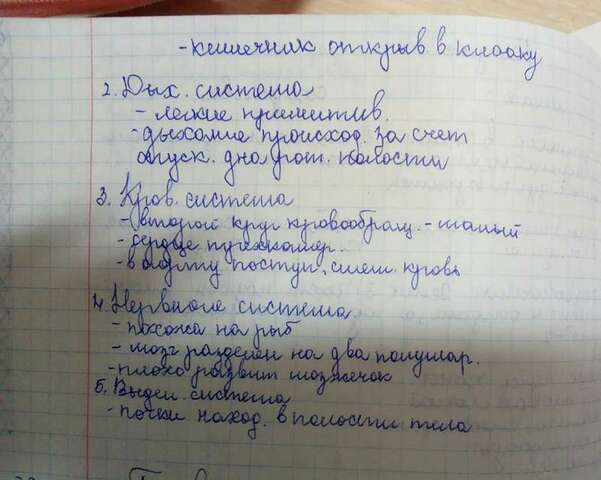 - кишечник открыв в клоаку
2. Дых. система
- легкие примитив.
- дыхание происход. за счет
опуск. дна рот. полости
3. Кров. система
- второй круг кровообращ. - малый
- сердце трехкамер.
- в аорту поступ. смеш. кровь
4. Нервная система
- похожа на рыб
- мозг разделен на два полушар.
- плохо развит мозжечок
5. Выдел. система
- почки наход. в полости тела